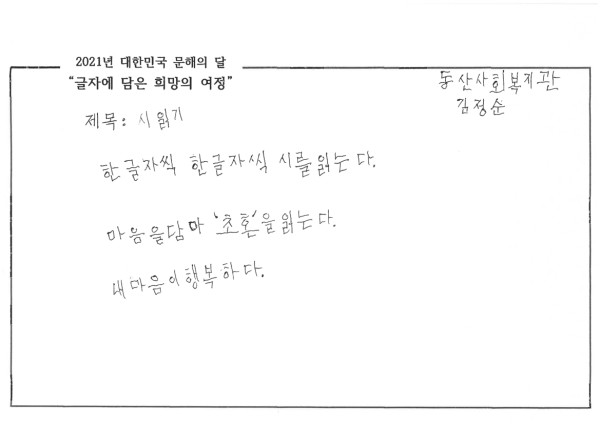 2021년 대한민국 문해의 달
“글자에 담은 희망의 여정”
동산사회복지관
김정순
제목: 시 읽기
한글자씩 한글자씩 시를 읽는다.
마음을담마 '초혼'을 읽는다.
내마음이행복하다.